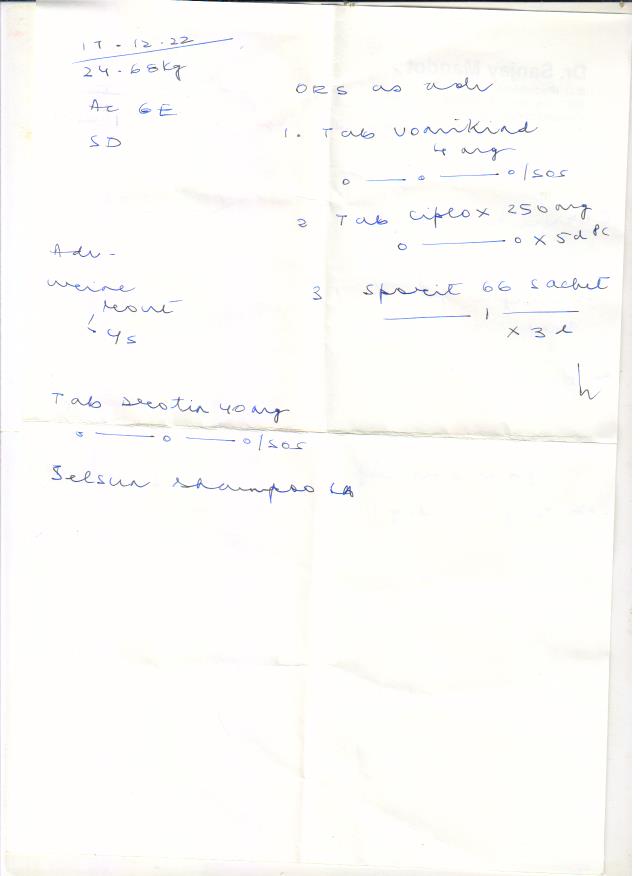 17-12-22
24.68kg
Ac GE
SD
ORS as adv
1. Tab Vomikind
4 mg
o — o — o/sos
2 Tab Ciplox 250mg
o — o x 5d pc
3 Sporit GG sachet
— 1 —
x 3 d
Adv -
urine
rout
Tab 40mg
o — o — o/sos
Selsun shampoo LA